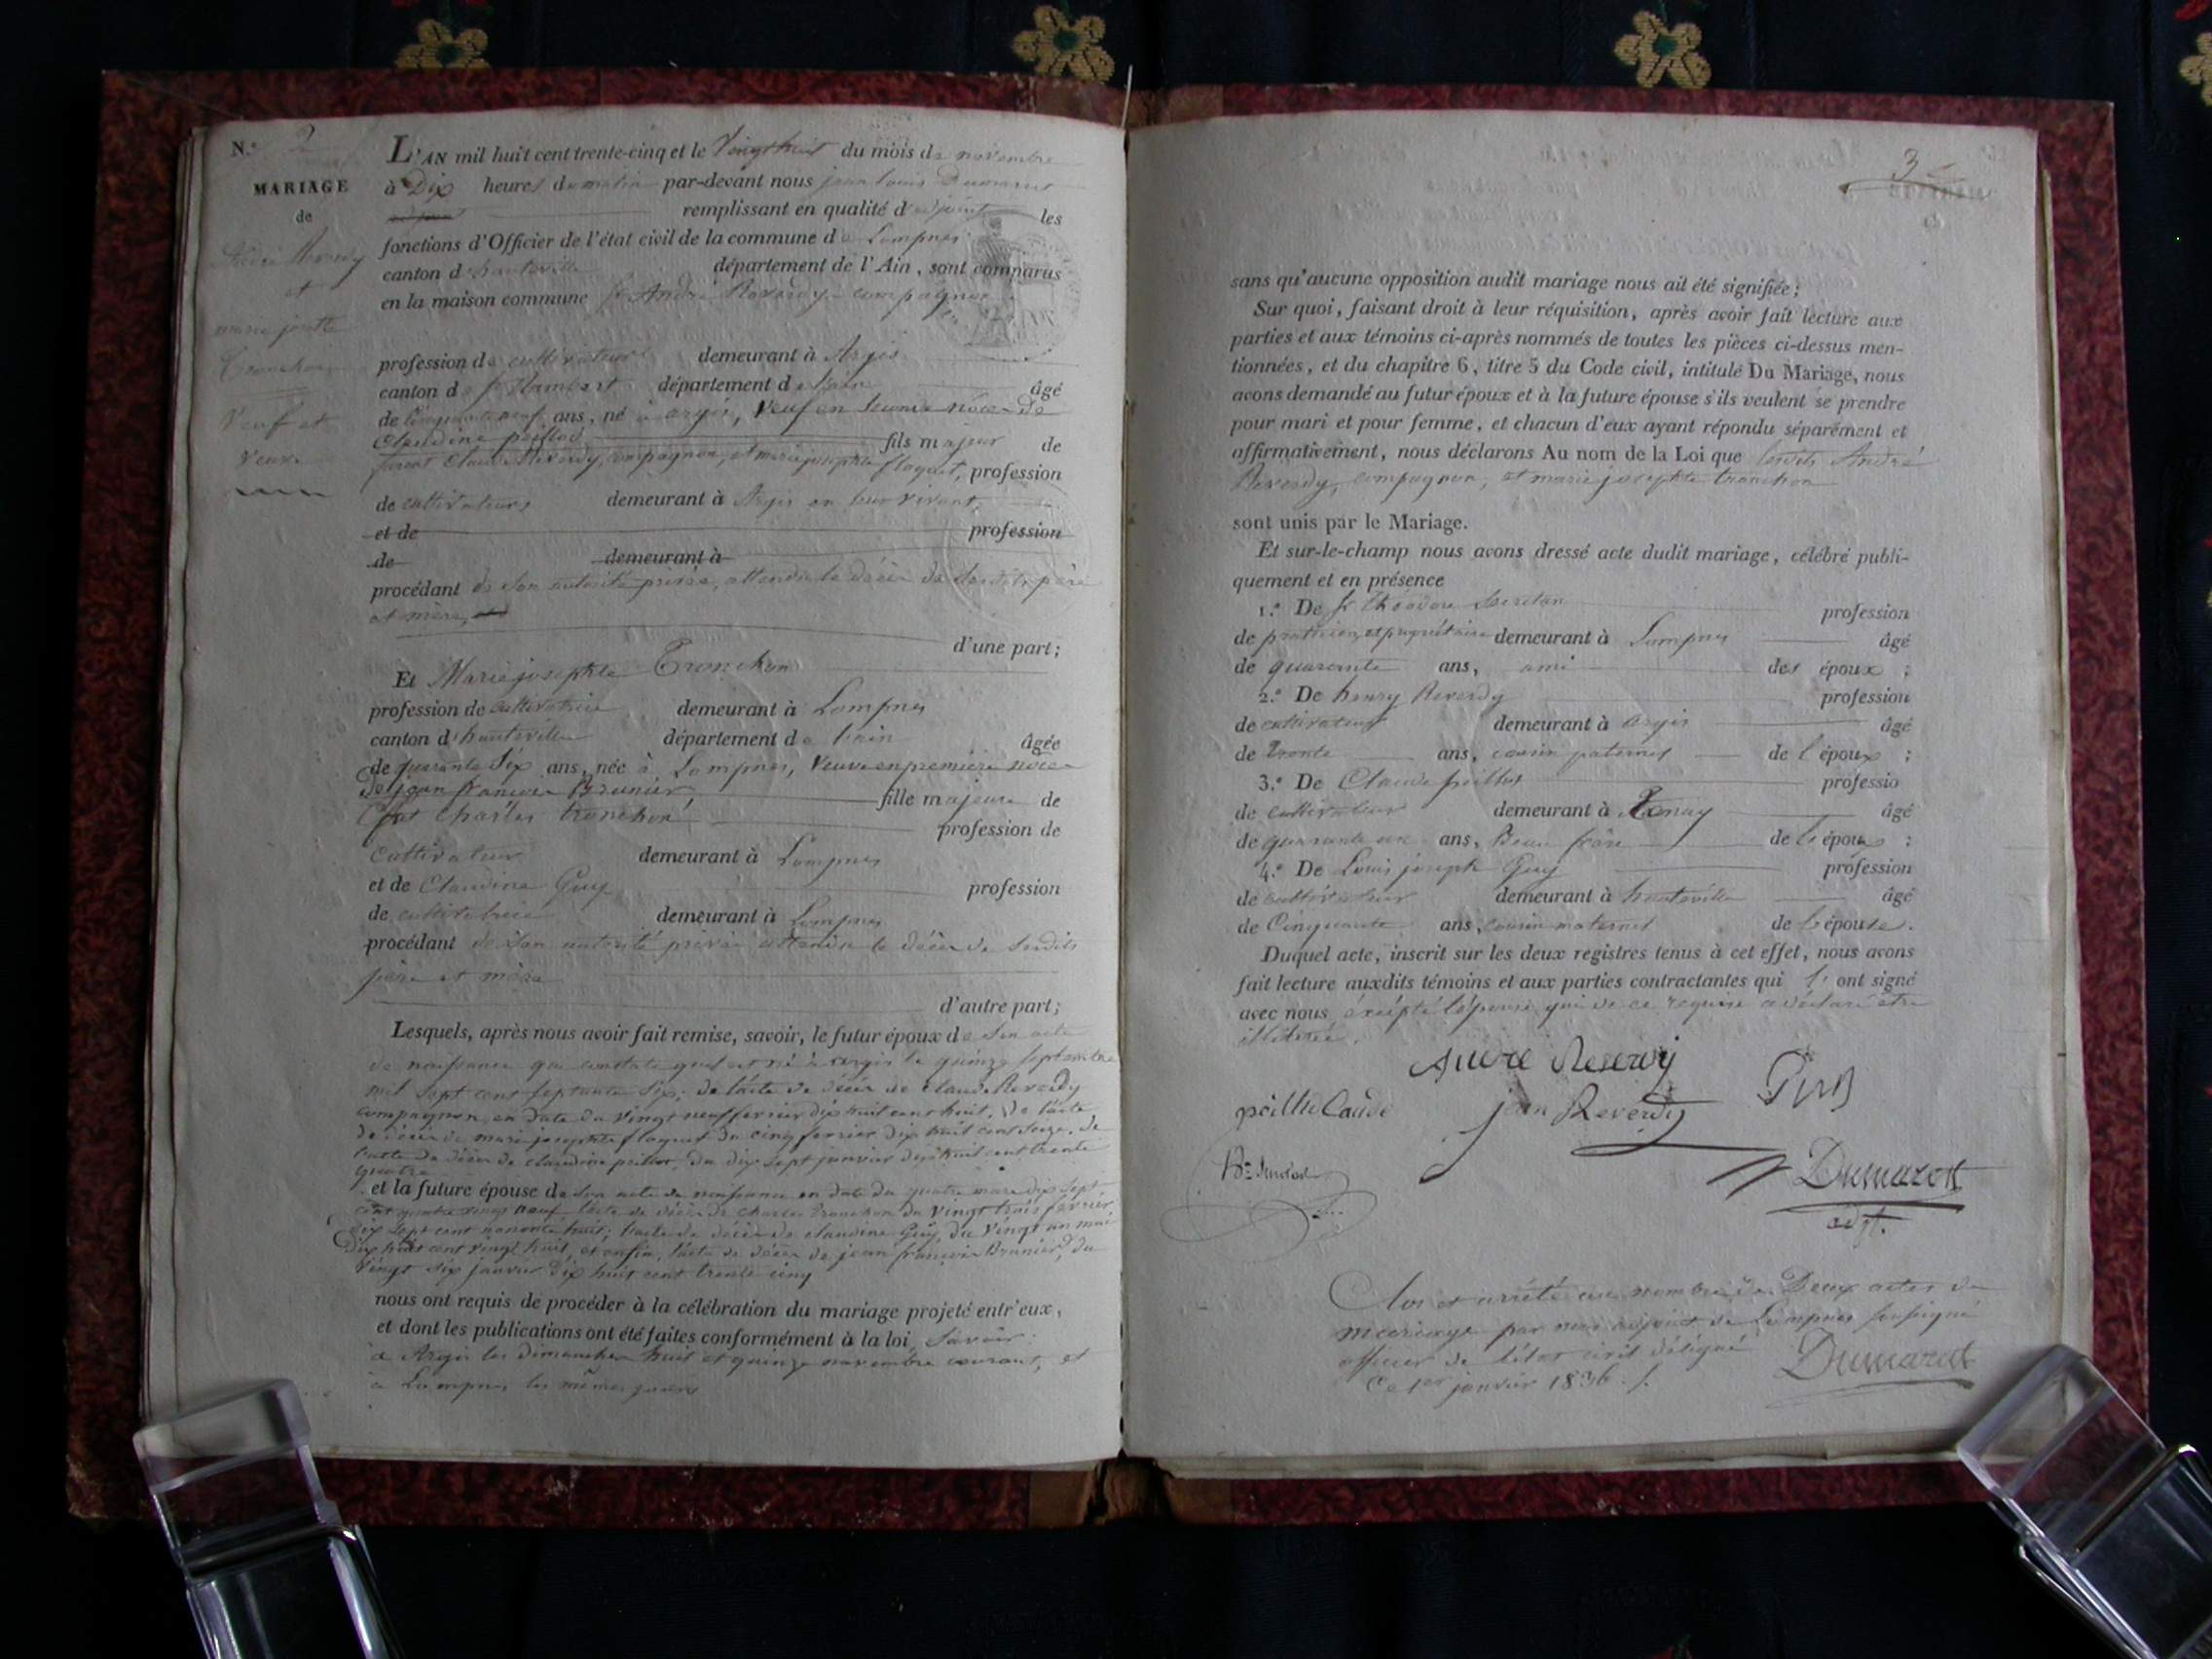 N.° 2
MARIAGE
de
André Reverdy
et
marie josephte
Tronchon
Veuf et
Veuve
L'AN mil huit cent trente-cinq et le Vingt huit du mois de novembre
à Dix heures du matin par-devant nous jean louis Dumarest
remplissant en qualité d'adjoint les
fonctions d'Officier de l'état civil de la commune de Lompnes
canton d'hauteville département de l'Ain, sont comparus
en la maison commune sr André Reverdy compagnon
profession de cultivateur demeurant à Argis
canton de st Rambert département de l'ain âgé
de Cinquante neuf ans, né à argis, Veuf en seconde noces de
Claudine peillod fils majeur de
furent Claude Reverdy, compagnon, et marie josephte floquet, profession
de cultivateurs demeurant à Argis en leur vivant
et de profession
de demeurant à
procédant de son autorité privée, attendu le décès de sesdits père
et mère,
d'une part;
Et Marie josephte Tronchon
profession de cultivatrice demeurant à Lompnes
canton d'hauteville département de l'ain âgée
de quarante Six ans, née à Lompnes, Veuve en première noces
De jean françois Brunier fille majeure de
fut Charles tronchon profession de
Cultivateur demeurant à Lompnes
et de Claudine Guy profession
de cultivatrice demeurant à Lompnes
procédant de Son autorité privée attendu le décès de sesdits
père et mère
d'autre part;
Lesquels, après nous avoir fait remise, savoir, le futur époux de Son acte
de naissance qui constate quil est né à argis le quinze septembre
mil sept cent septante Six; de l'acte de décès de Claude Reverdy
compagnon, en Date du Vingt neuf fevrier dix huit cent huit, De l'acte
de décès de marie josephte floquet du cinq fevrier dix huit cent seize, de
l'acte de décès de claudine peillod, du dix sept janvier dix huit cent trente
quatre
et la future épouse de Son acte de naissance en date du quatre mars dix sept
cent quatre vingt neuf, l'acte de décès de Charles Tronchon du Vingt trois fevrier
dix sept cent nonante huit; l'acte de décès de claudine Guy, du Vingt un mai
Dix huit cent vingt huit, et enfin, l'acte de décès de jean françois Brunier, du
Vingt six janvier dix huit cent trente cinq
nous ont requis de procéder à la célébration du mariage projeté entr'eux,
et dont les publications ont été faites conformément à la loi, Savoir:
à Argis les dimanches huit et quinze novembre courant, et
à Lompnes les mêmes jours
3
sans qu'aucune opposition audit mariage nous ait été signifiée;
Sur quoi, faisant droit à leur réquisition, après avoir fait lecture aux
parties et aux témoins ci-après nommés de toutes les pièces ci-dessus men-
tionnées, et du chapitre 6, titre 5 du Code civil, intitulé Du Mariage, nous
avons demandé au futur époux et à la future épouse s'ils veulent se prendre
pour mari et pour femme, et chacun d'eux ayant répondu séparément et
affirmativement, nous déclarons Au nom de la Loi que lesdits André
Reverdy, compagnon, et marie josephte tronchon
sont unis par le Mariage.
Et sur-le-champ nous avons dressé acte dudit mariage, célébré publi-
quement et en présence
1.° De sr théodore Secretan profession
de praticien et propriétaire demeurant à Lompnes âgé
de quarante ans, ami des époux ;
2.° De henry Reverdy profession
de cultivateur demeurant à argis âgé
de trente ans, cousin paternel de l'époux ;
3.° De Claude peillod professio
de cultivateur demeurant à Tenay âgé
de quarante un ans, Beau frère de l'époux ;
4.° De Louis joseph Guy profession
de cultivateur demeurant à hauteville âgé
de Cinquante ans, cousin maternel de l'épouse.
Duquel acte, inscrit sur les deux registres tenus à cet effet, nous avons
fait lecture auxdits témoins et aux parties contractantes qui l'ont signé
avec nous excépté l'épouse qui de ce requise a déclaré être
illiterée.
André Reverdy
Guy
jean Reverdy
Dumarest
adjt.
Clos et arrêté au nombre de Deux actes de
mariage par nous adjoint de Lompnes soussigné
officier de l'état civil délégué
Ce 1er janvier 1836 ./.
Dumarest